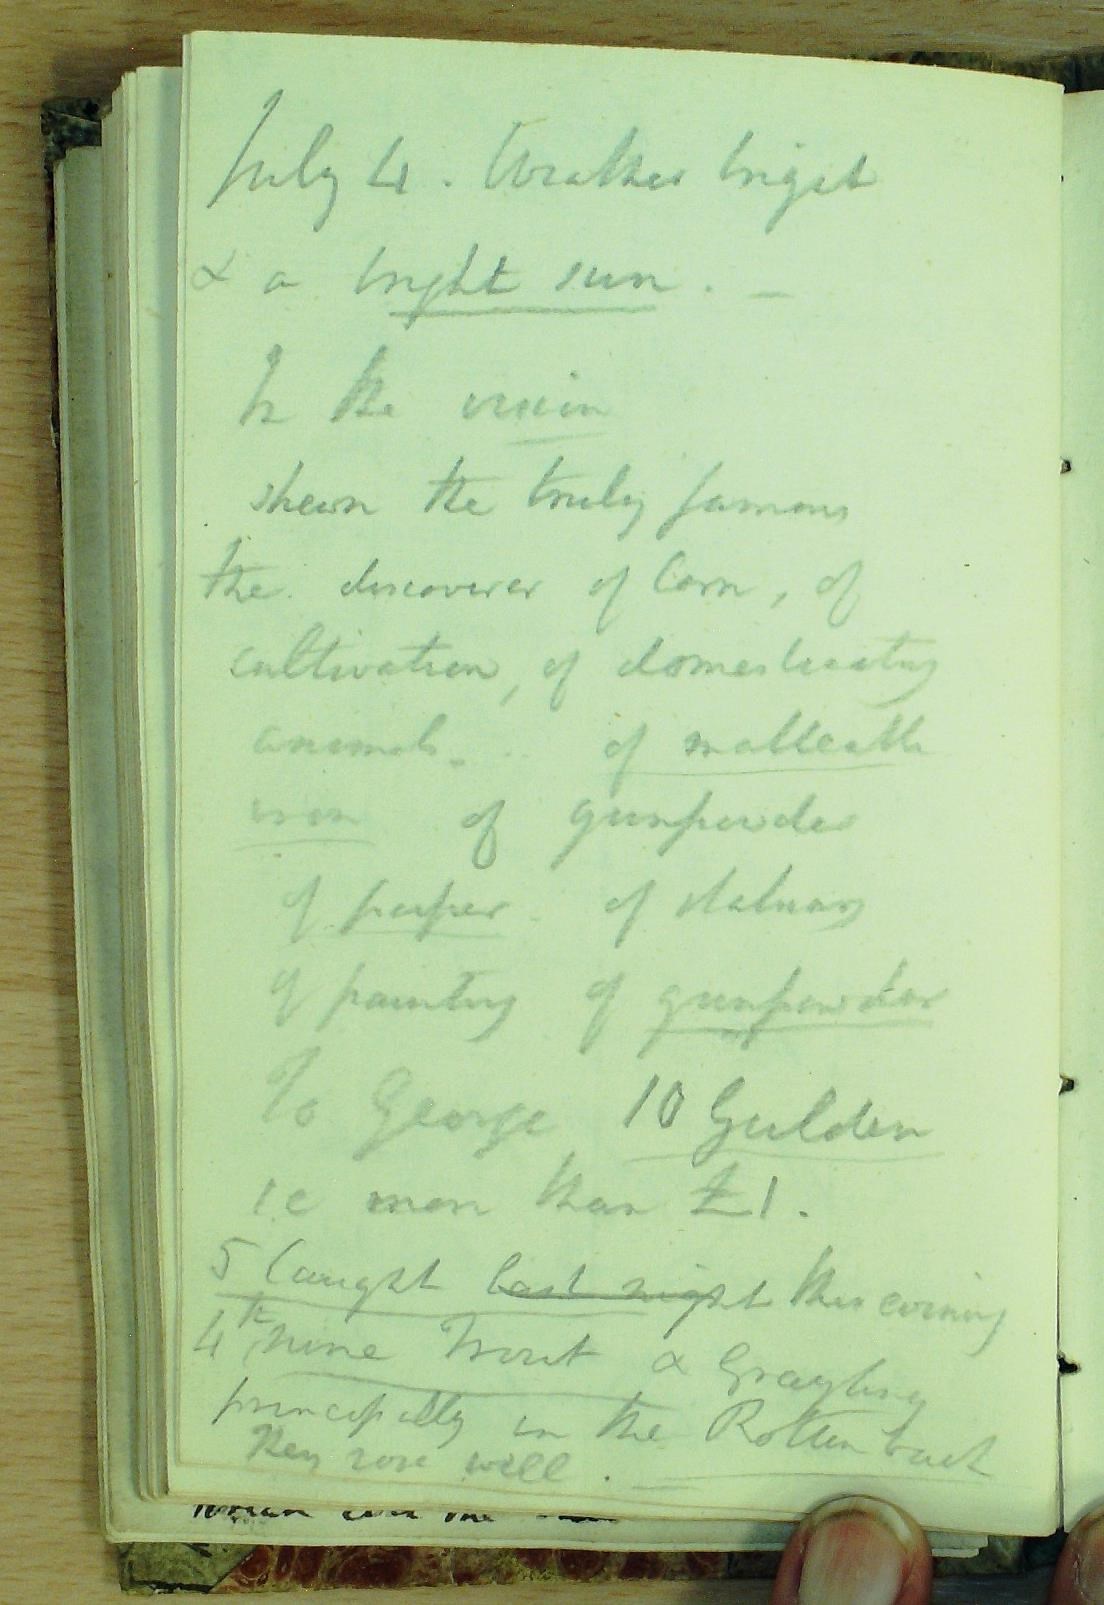 July 4. Weather bright
& a bright sun. —
In the vision
shewn the truly famous
the discoverer of Corn, of
cultivation, of domesticating
animals. of malleable
iron of gunpowder
of paper. of statuary
of painting of gunpowder
To George 10 Gulden
ie more than £1.
5 Caught last night this evening
4th nine Trout & Grayling
principally in the Rottenbach
They rose well. —